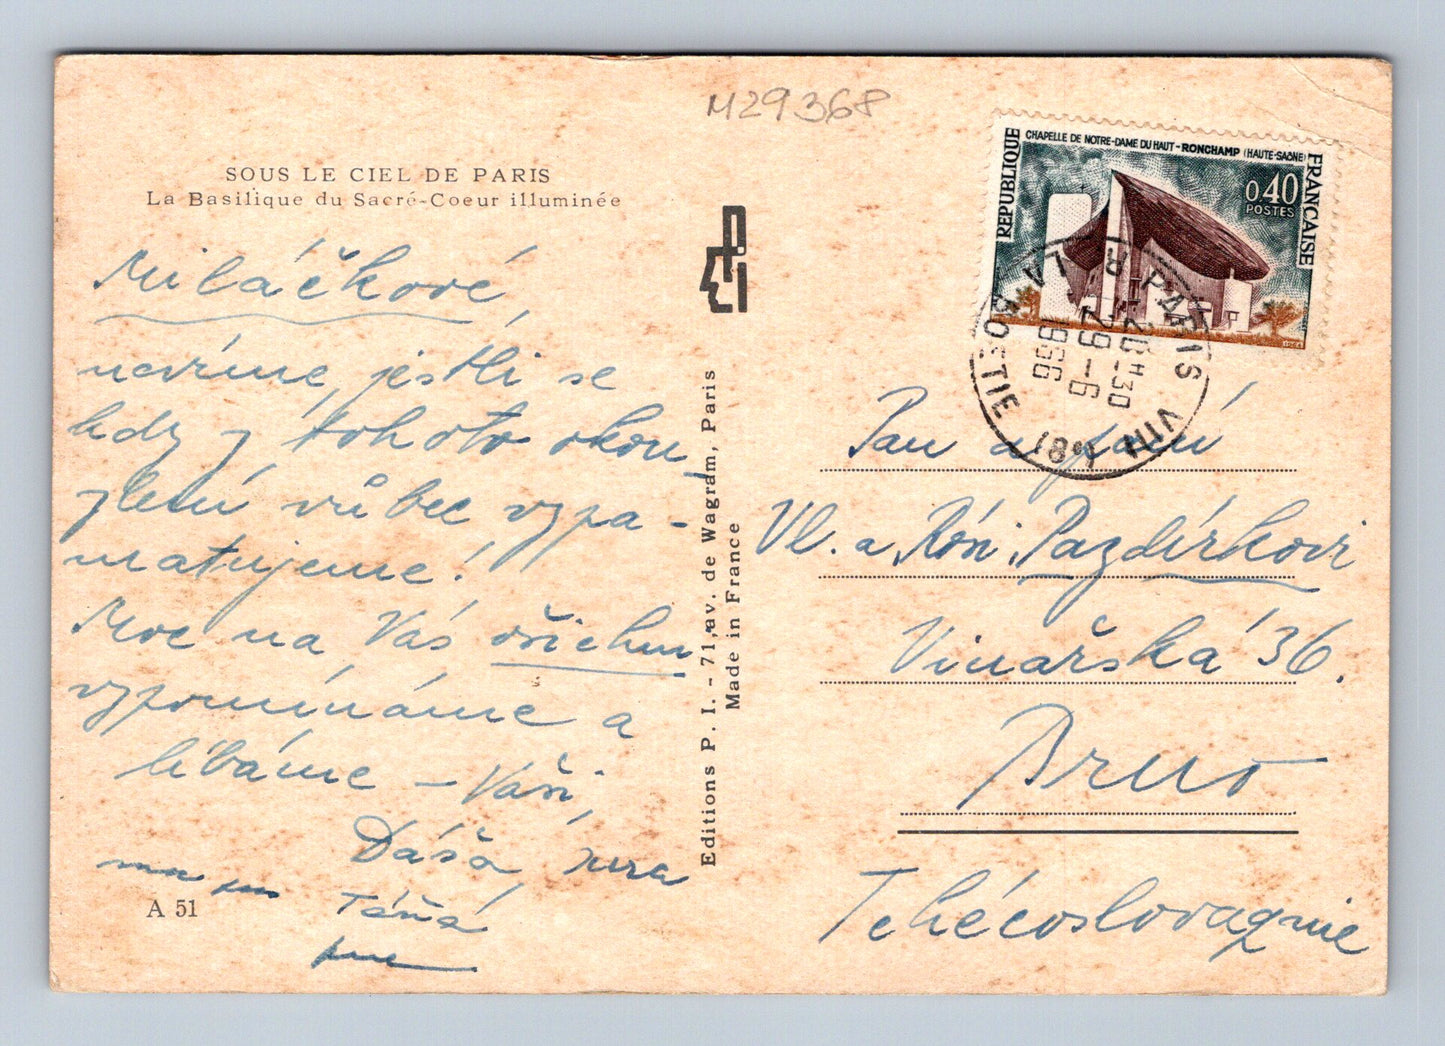 M29368
SOUS LE CIEL DE PARIS
La Basilique du Sacré-Coeur illuminée
Miláčkové,
nevíme, jestli se
kdy z tohoto okou-
zlení vůbec vzpa-
matujeme!
Moc na Vás všichni
vzpomínáme a
líbáme – Vaši,
Dáša, Jura
Táňa
A 51
Editions P. I. - 71, av. de Wagram, Paris
Made in France
RÉPUBLIQUE FRANÇAISE
CHAPELLE DE NOTRE-DAME DU HAUT - RONCHAMP (HAUTE-SAÔNE)
0,40
POSTES
PARIS VIII
R. LA BOETIE (8e)
20H30
29-6
1966
Pan a paní
Vl. a Pazdírkovi
Vinařská 36.
Brno
Tchécoslovaquie